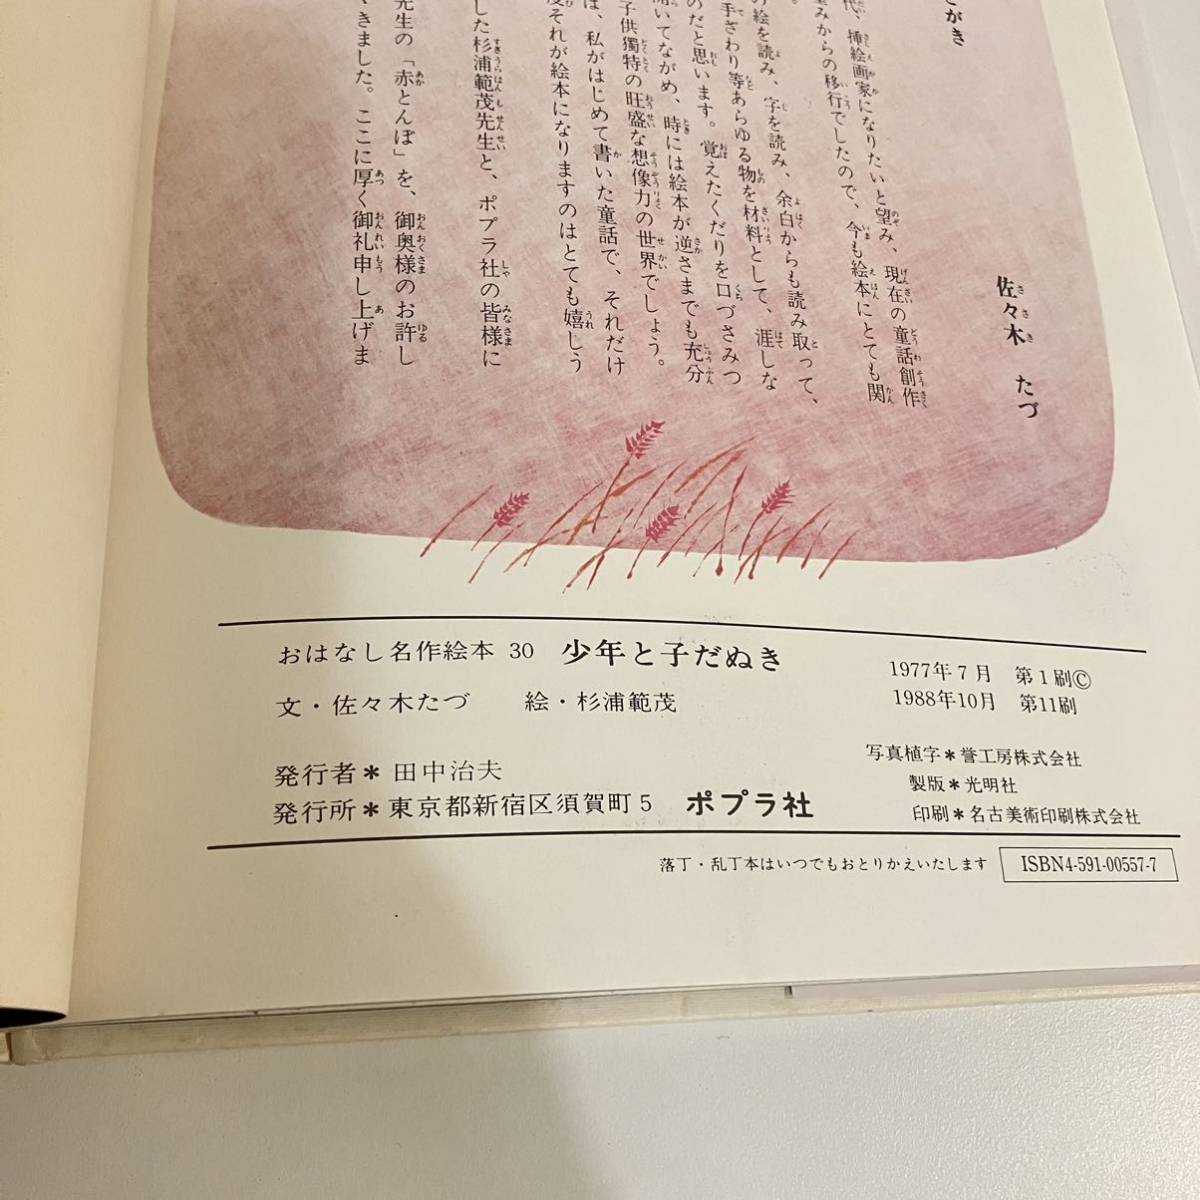 とがき
佐々木 たづ
代、挿絵画家になりたいと望み、現在の童話創作
望みからの移行でしたので、今も絵本にとても関
の絵を読み、字を読み、余白からも読み取って、
手ざわり等あらゆる物を材料として、涯しな
のだと思います。覚えたくだりを口づさみつ
開いてながめ、時には絵本が逆さまでも充分
子供獨特の旺盛な想像力の世界でしょう。
は、私がはじめて書いた童話で、それだけ
それが絵本になりますのはとても嬉しう
した杉浦範茂先生と、ポプラ社の皆様に
先生の「赤とんぼ」を、御奥様のお許し
きました。ここに厚く御礼申し上げま
おはなし名作絵本 30 少年と子だぬき
文・佐々木たづ 絵・杉浦範茂
1977年7月 第1刷©
1988年10月 第11刷
発行者*田中治夫
発行所*東京都新宿区須賀町5 ポプラ社
写真植字*誉工房株式会社
製版*光明社
印刷*名古美術印刷株式会社
落丁・乱丁本はいつでもおとりかえいたします
ISBN4-591-00557-7